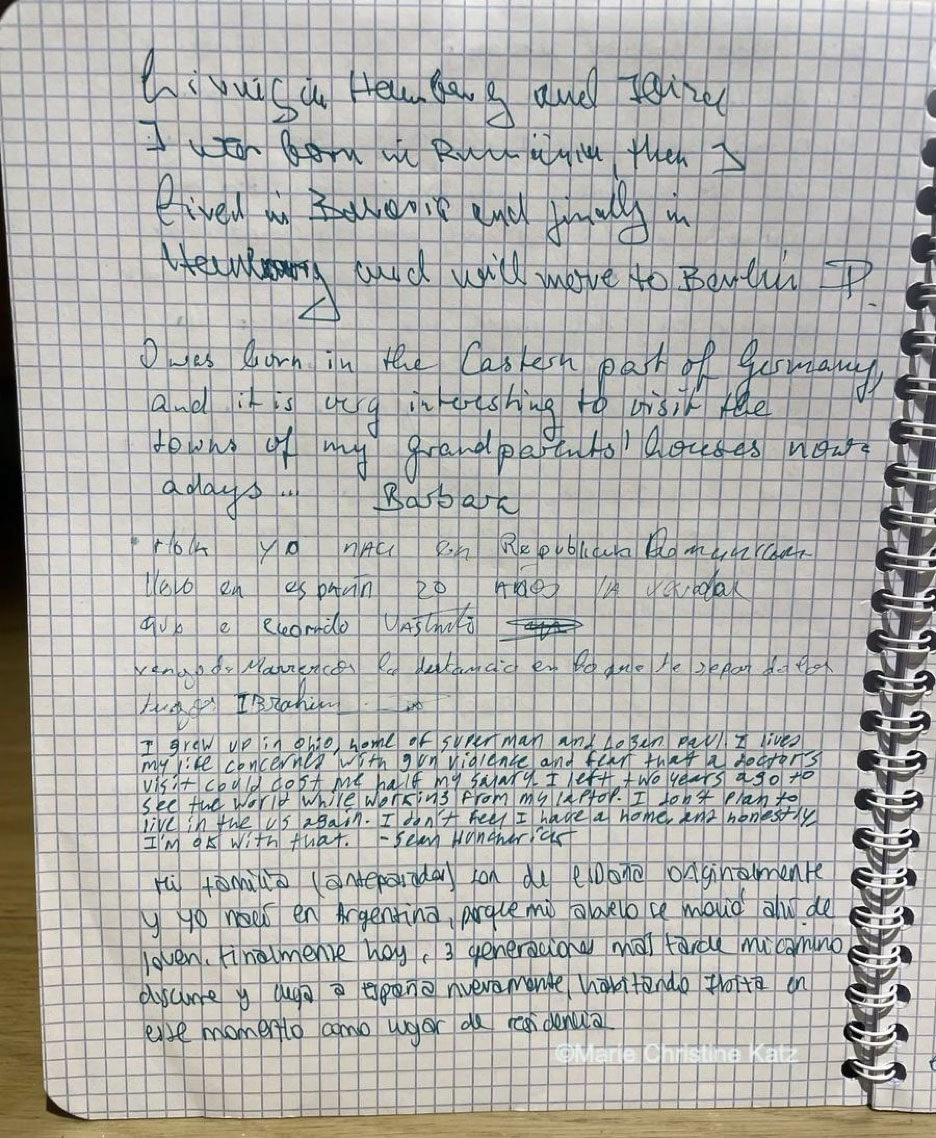 Living in Hamburg and Ibiza
I was born in Rumänien, then I
lived in Bavaria and finally in
Hamburg and will move to Berlin P.
I was born in the Eastern part of Germany,
and it is very interesting to visit the
towns of my grandparents' houses now-
adays ... Barbara
Hola yo naci en Republica Domynicana
llevo en españa 20 AÑOS LA verdad
que e
vengo de Marruecos la distancia en lo que te separ de los
IBrahim
I grew up in Ohio, home of superman and Logan Paul. I lives
my life concerned with gun violence and fear that a doctor's
visit could cost me half my salary. I left two years ago to
see the world while working from my laptop. I don't plan to
live in the US again. I don't feel I have a home and honestly
I'm ok with that. - Sean
Mi familia (antepasados) son de españa originalmente
y yo nací en Argentina, porque mi abuelo se movió ahí de
joven. Finalmente hoy, 3 generaciones más tarde mi camino
discurre y llega a españa nuevamente, habitando Ibiza en
este momento como lugar de residencia
©Marie Christine Katz